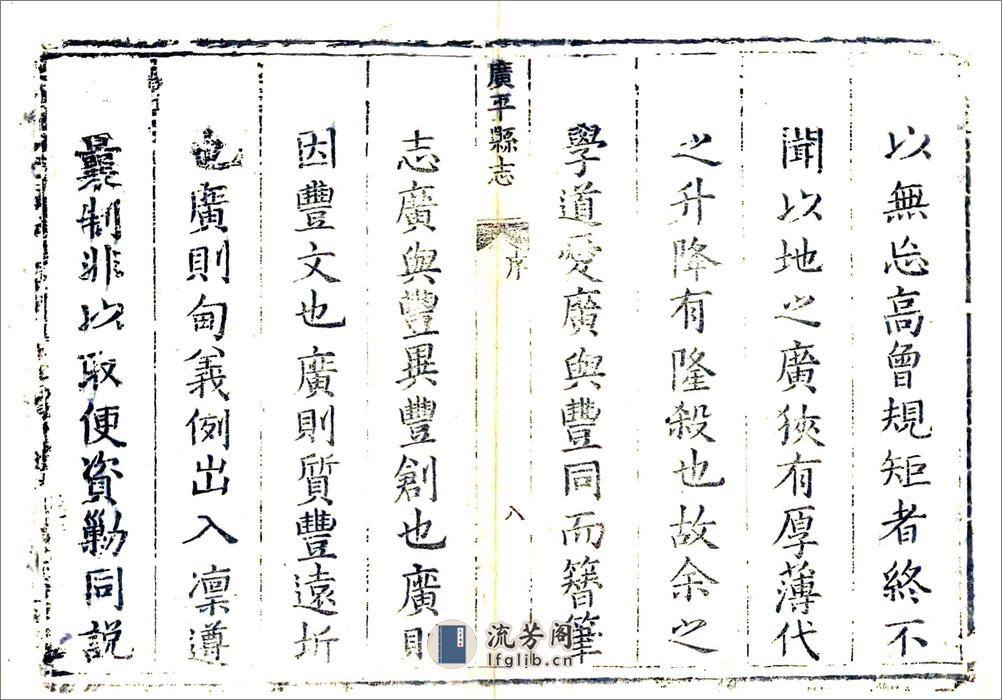 以無忘高曾規矩者終不
聞以地之廣狹有厚薄代
之升降有隆殺也故余之
學道愛廣與豐同而簪筆
廣平縣志
序
八
志廣與豐異豐創也廣則
因豐文也廣則質豐遠圻
也廣則甸義例出入凜遵
曩制非以取便資勦同説
流芳阁
lfglib.cn